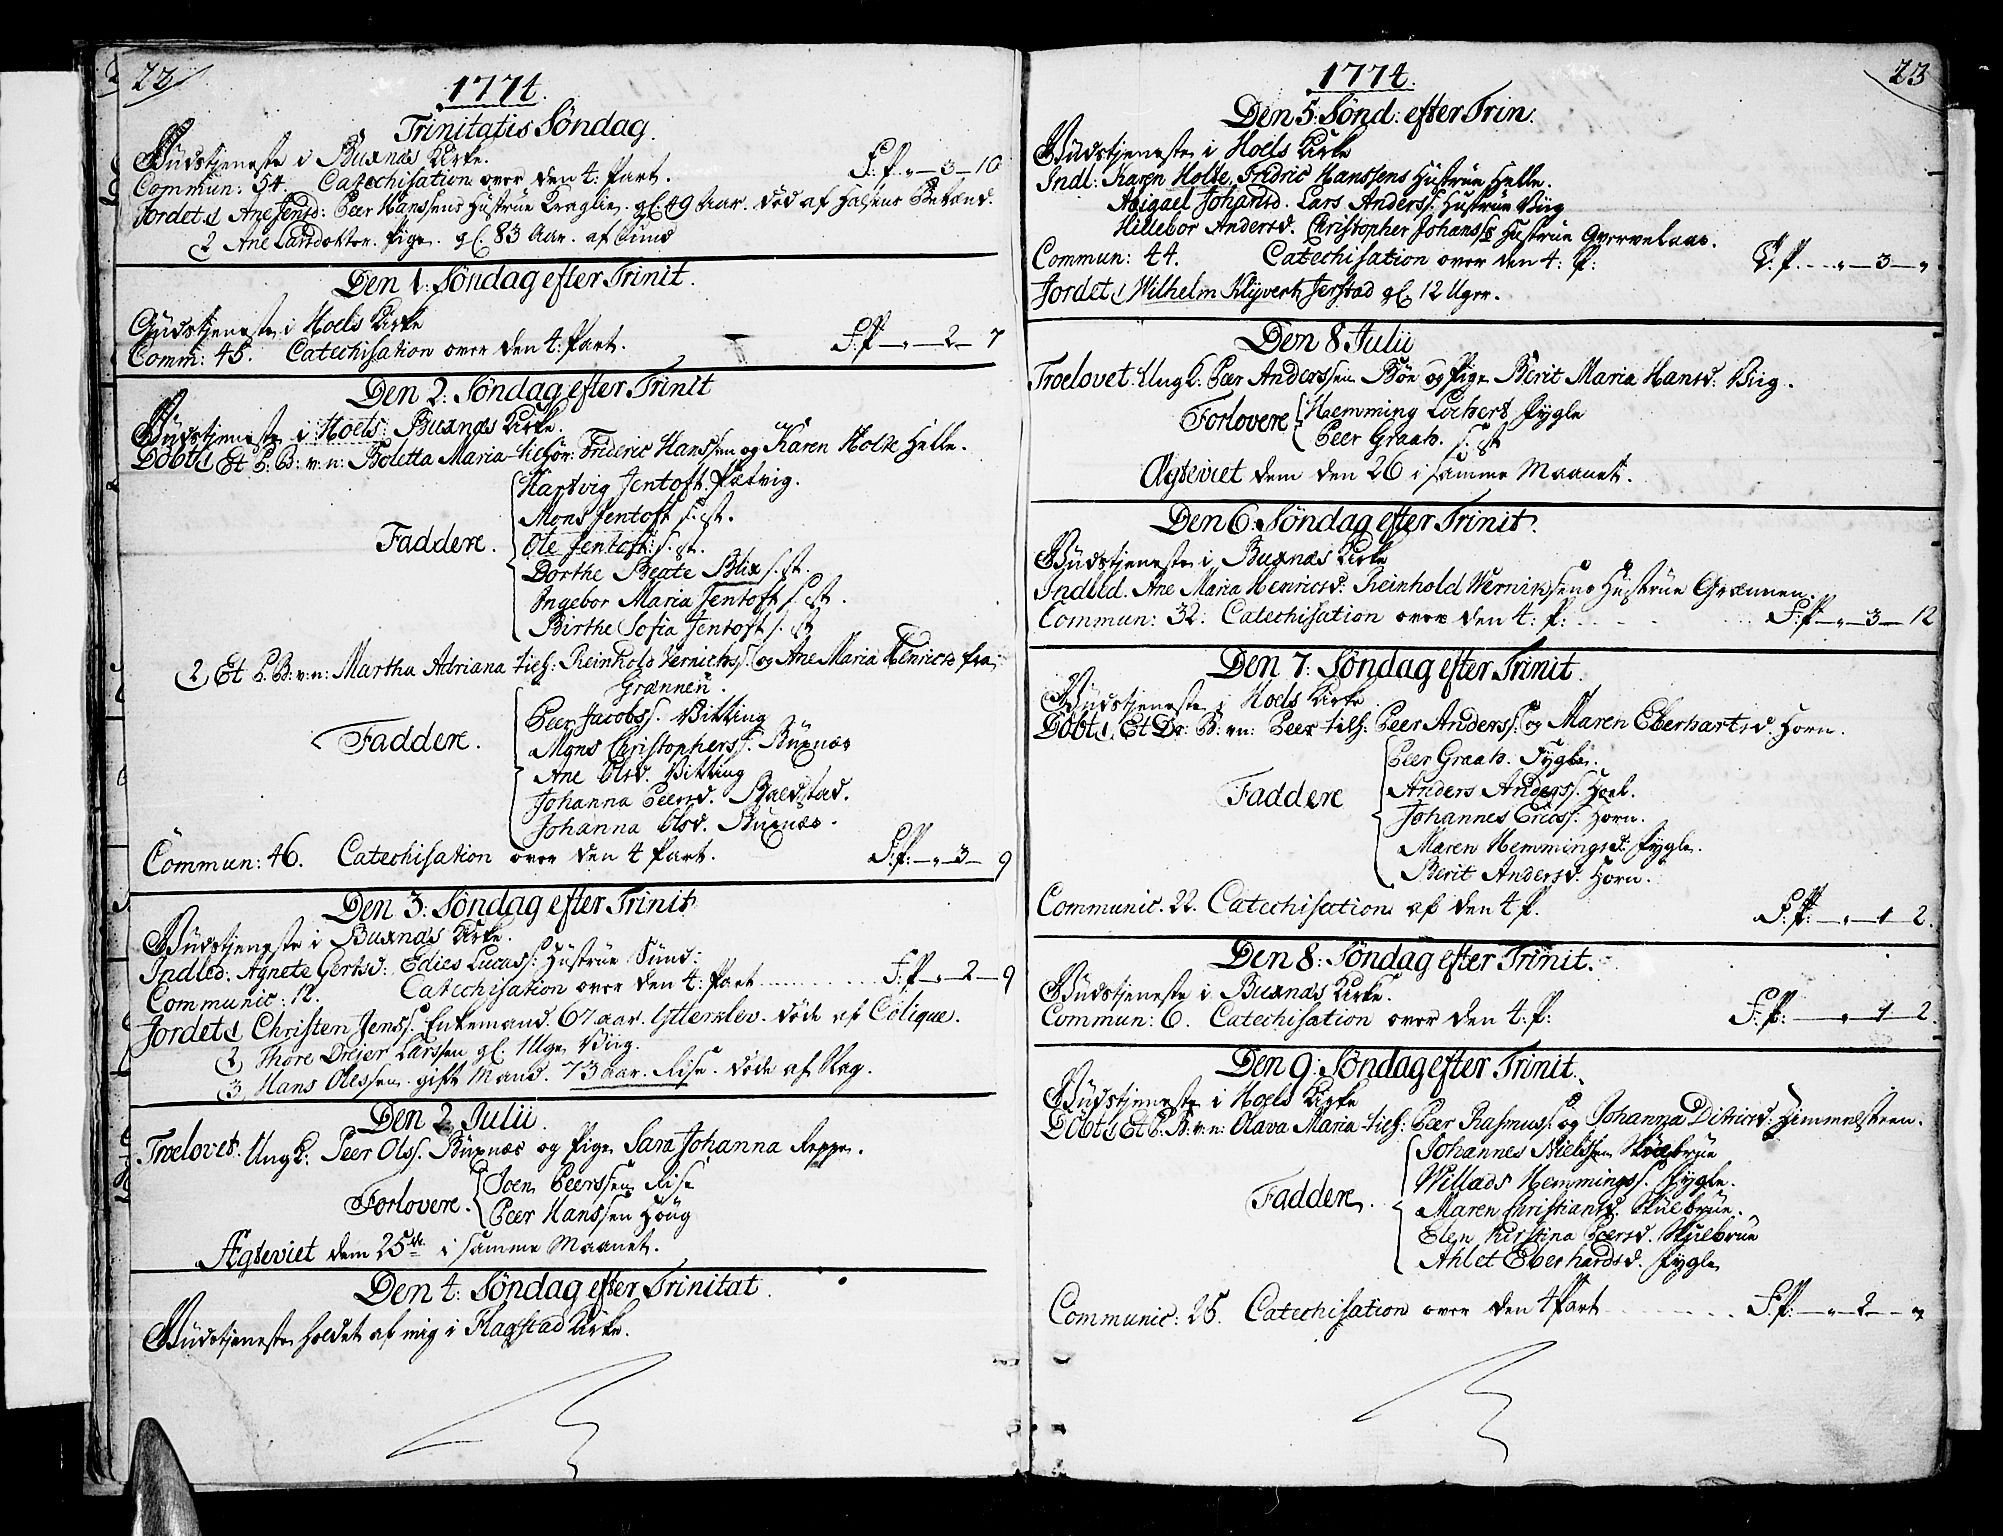 22
1774.
Trinitatis Søndag.
Gudstjeneste i Buxnæs Kirke.
Commun: 54. Catechisation over den 4: Part. F: P. „ — 3 — 10
Jordet 1 Ane Jensd: Peer Hanssens Hustrue Kraglie. gl. 49 Aar. død af Halsens Betænd.
2 Ane Larsdotter. Pige. gl. 83 Aar. af Sund
Den 1: Søndag efter Trinit.
Gudstjeneste i Hoels Kirke
Comm: 45. Catechisation over den 4: Part. F: P — „ — 2 — 7
Den 2: Søndag efter Trinit
Gudstjeneste i Hoels: Buxnæs Kirke.
Døbt 1 Et P. B: v: n: Boletta Maria tilhør: Frideric Hanssen og Karen Holte Helle.
Hartvig Jentoft. Petvig.
Mons Jentoft s. st.
Faddere. Ole Jentoft: s. st.
Dorthe Beate Blix s. st.
Ingebor Maria Jentoft s. st.
Birthe Sofia Jentoft s. st
2 Et P. B: v: n: Martha Adriana tilh: Reinhold Vernichs: og Ane Maria Henricsd fra
Grænnen.
Peer Jacobss. Vitting
Faddere. Mons Christopherss. Buxnæs
Ane Olsd. Vitting
Johanna Peersd. Baldstad.
Johanna Olsd. Buxnæs.
Commun: 46. Catechisation over den 4 Part. F: P: — „ — 3 — 9
Den 3: Søndag efter Trinit
Gudstjeneste i Buxnæs Kirke.
Indled: Agnete Gertsd: Edies Lucass: Hustrue Sund:
Communic: 12. Catechisation over den 4: Part F: P — „ — 2 — 9
Jordet 1 Christen Jenss. Enkemand. 67 aar. Ytterslev. døde af Colique.
2 Thore Drejer Larssen gl. 1 Uge Viig.
3 Hans Olessen. gift Mand. 73 aar. Rise. døde af Slag.
Den 2 Julii.
Troelovet. Ungk: Peer Olss. Buxnæs og Pige Sara Johanna Reppe.
Forlovere. Joen Peerssen Rise
Peer Hanssen Houg
Ægteviet dem 25de i samme Maanet.
Den 4: Søndag efter Trinitat.
Gudstjeneste holdet af mig i Flagstad Kirke.
23
1774.
Den 5: Sønd: efter Trin.
Gudstjeneste i Hoels Kirke
Indl: Karen Holte, Fridric Hanssens Hustrue Helle.
Abigael Johansd. Lars Anderss. Hustrue Viig
Hillebor Andersd. Christopher Johanss Hustrue
Commun: 44. Catechisation over den 4: P: F: P. — „ — 3 — „
Jordet 1 Wilhelm Klyvert Jerstad gl. 12 Uger.
Den 8 Julii
Troelovet: Ungk. Peer Anderssen Bøe og Pige Berit Maria Hansd: Viig.
Forlovere Hæmming Lockert Fygle
Peer Graah. s. st
Ægteviet dem den 26 i samme Maanet.
Den 6: Søndag efter Trinit.
Gudstjeneste i Buxnæs Kirke
Indled. Ane Maria Henricsd: Reinhold Vernichssens Hustrue Grænnen.
Commun: 32. Catechisation over den 4: P: F: P — „ — 3 — 12
Den 7: Søndag efter Trinit.
Gudstjeneste i Hoels Kirke
Døbt 1. Et Dr: B: v: n: Peer tilh: Peer Anderss: og Maren Eberhartsd. Horn.
Peer Graah. Fygle.
Faddere Anders Anderss: Hoel.
Johannes Ericss: Horn.
Maren Hemmingsd: Fygle.
Berit Andersd. Horn.
Communic. 22. Catechisation af den 4 P. F: P: — „ — 1 2.
Den 8: Søndag efter Trinit.
Gudstjeneste i Buxnæs Kirke.
Commun: 6. Catechisation over den 4: P: F: P: — „ — 1 2.
Den 9: Søndag efter Trinit.
Gudstjeneste i Hoels Kirke
Døbt 1 Et P. B: v: n: Olava Maria tilh: Peer Rasmuss: og Johanna Ditricsd: Himmelsteen.
Johannes Nielssen Skulbrue
Willads Hemmingss. Fygle.
Faddere. Maren Christiansd. Skulbrue.
Elen Kirstina Peersd. Skulbrue
Ahlet Eberhardsd. Fygle
Communic: 25. Catechisation over den 4 Part F: P: — „ — 2 — „